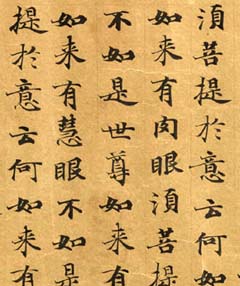 湏菩提於意云何如
如来有肉眼湏菩提
不如是世尊如来有
如来有慧眼不如是
提於意云何如来有